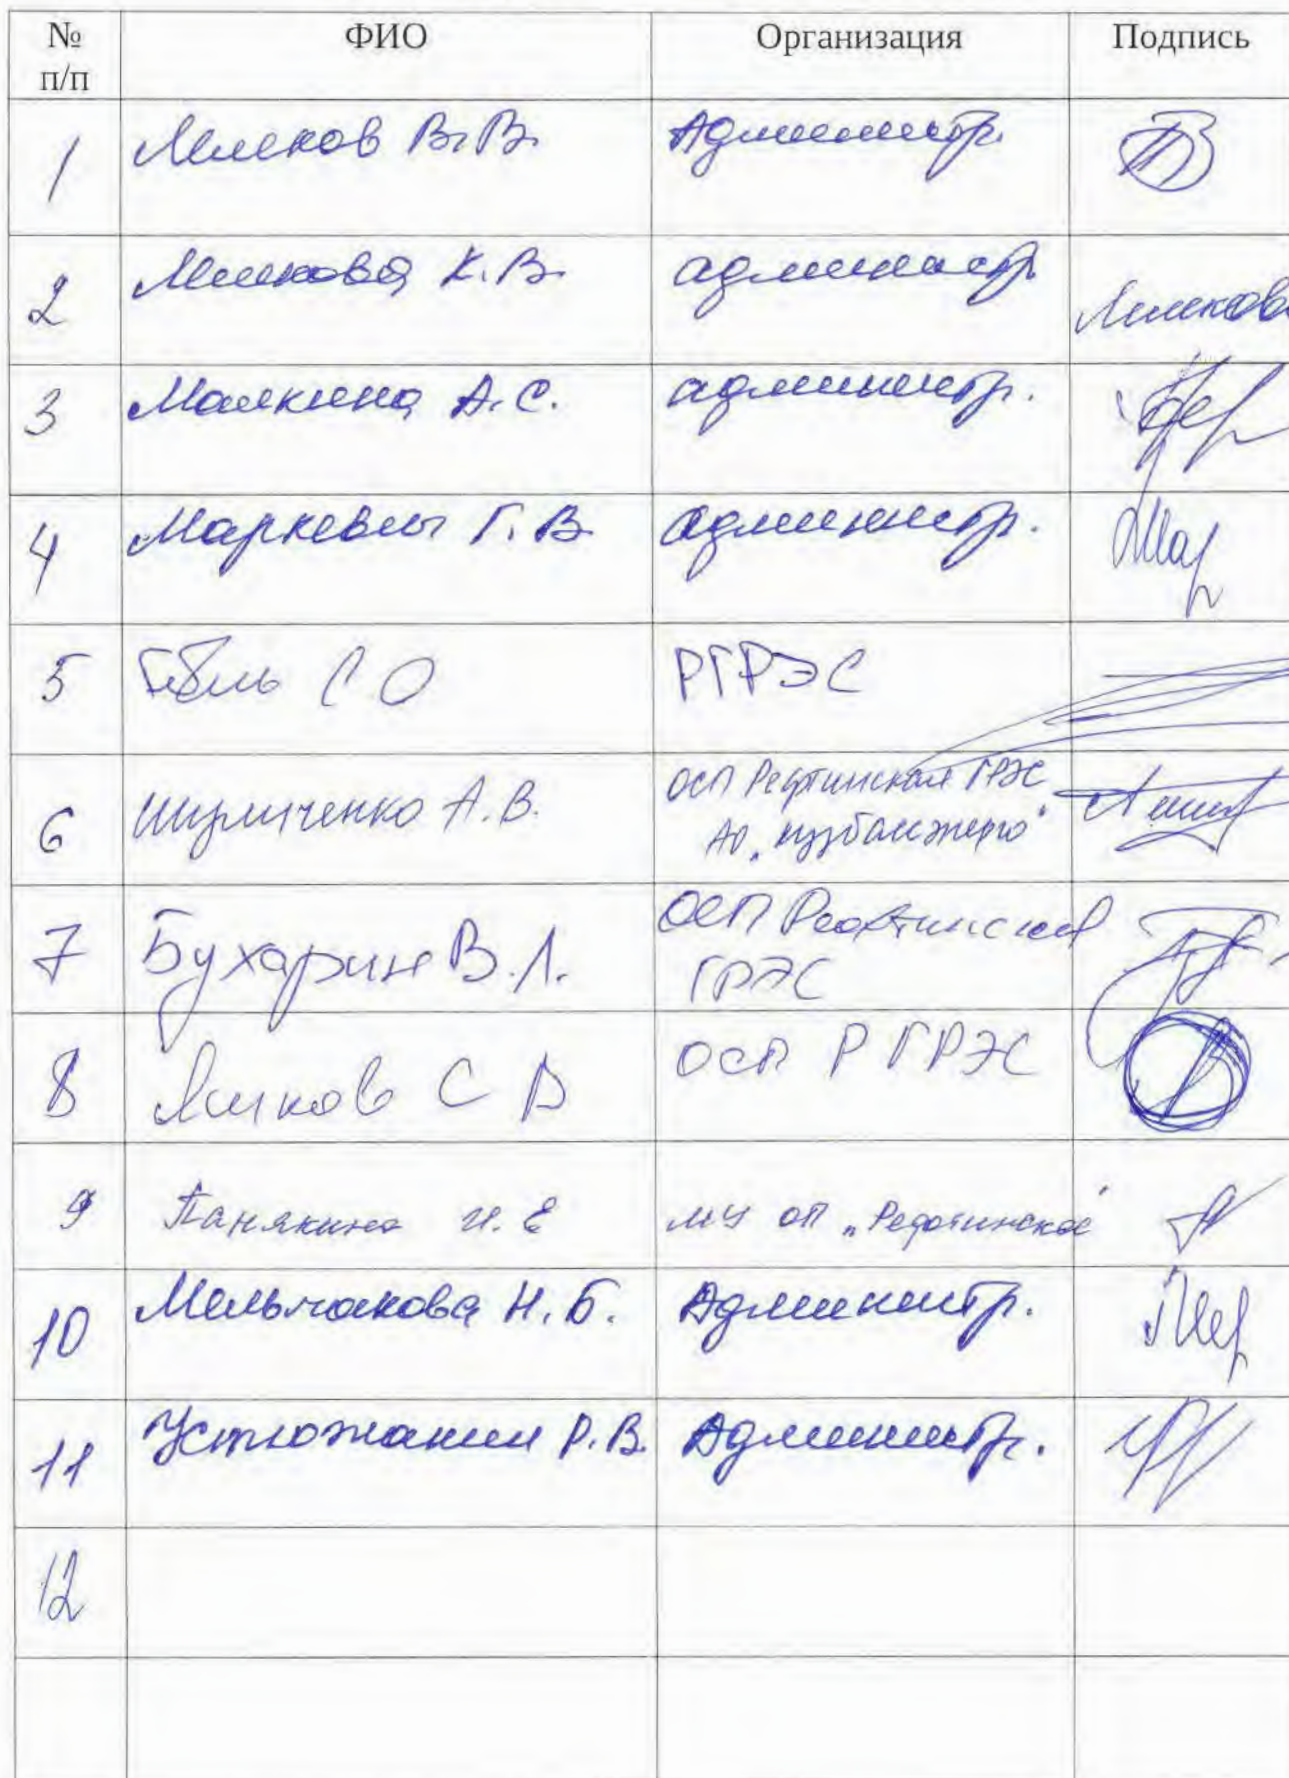 № п/п ФИО Организация Подпись
1 В.В. Администр.
2 К.В. администр
3 Малкина А.С. администр.
4 Маркевич Г.В администр.
5 С О РГРЭС
6 А.В. ОСП Рефтинская ГРЭС
АО „Кузбассэнерго"
7 Бухарин В.Л. ОСП Рефтинская
ГРЭС
8 С В ОСП РГРЭС
9 Панякина И.Е МУ ОП „Рефтинское"
10 Мельчакова Н.Б. Администр.
11 Устюжанин Р.В. Администр.
12